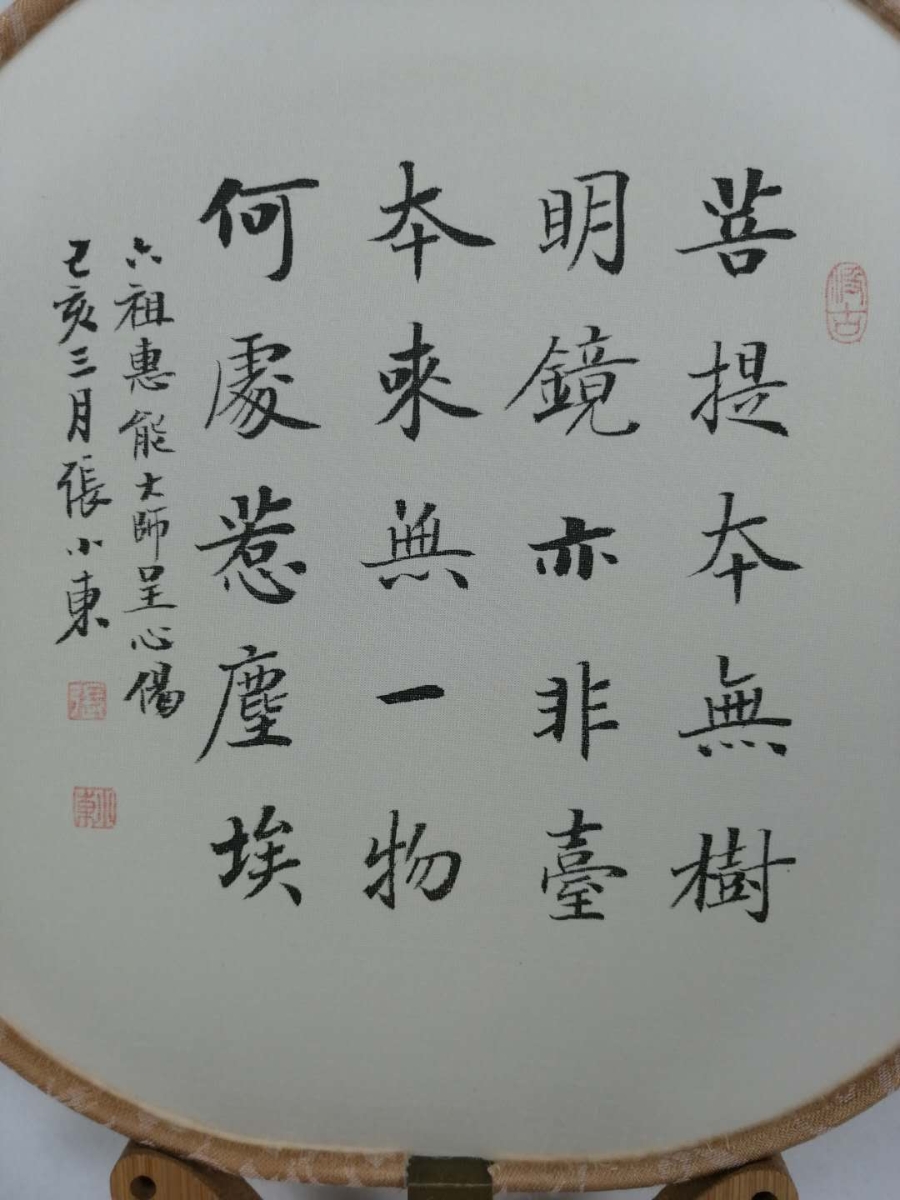 菩提本無樹
明鏡亦非臺
本來無一物
何處惹塵埃
六祖惠能大師呈心偈
己亥三月張小東